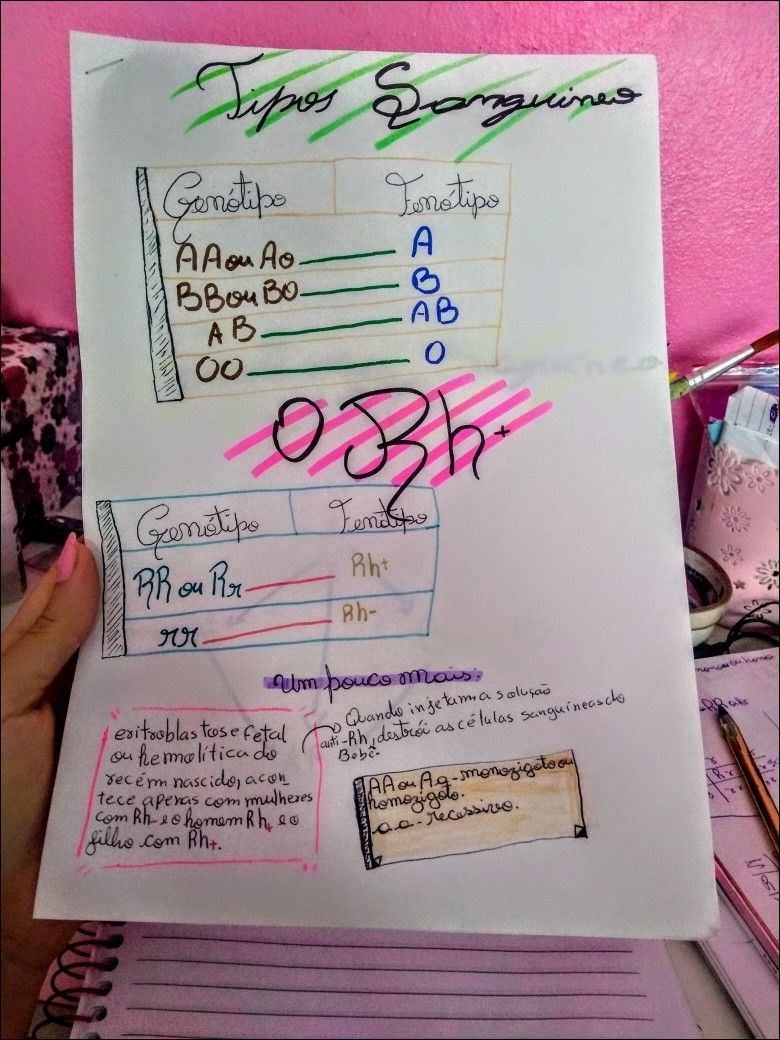 Tipos Sanguineo
Genótipo Fenótipo
AA ou Ao A
BB ou BO B
AB AB
OO O
O Rh+
Genótipo Fenótipo
RR ou Rr Rh+
rr Rh-
Um pouco mais:
eritroblastose fetal
ou hemolítica do
recém nascido, acon
tece apenas com mulheres
com Rh- e o homem Rh+ e o
filho com Rh+.
Quando injetam a solução
anti-Rh, destrói as células sanguíneas do
Bebê.
AA ou Aa - monozigoto ou
homozigoto.
aa - recessivo.